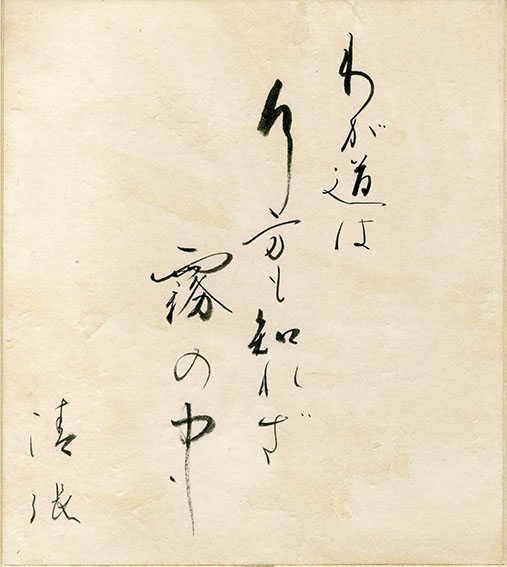 わが道は
行方も知れず
霧の中
清張